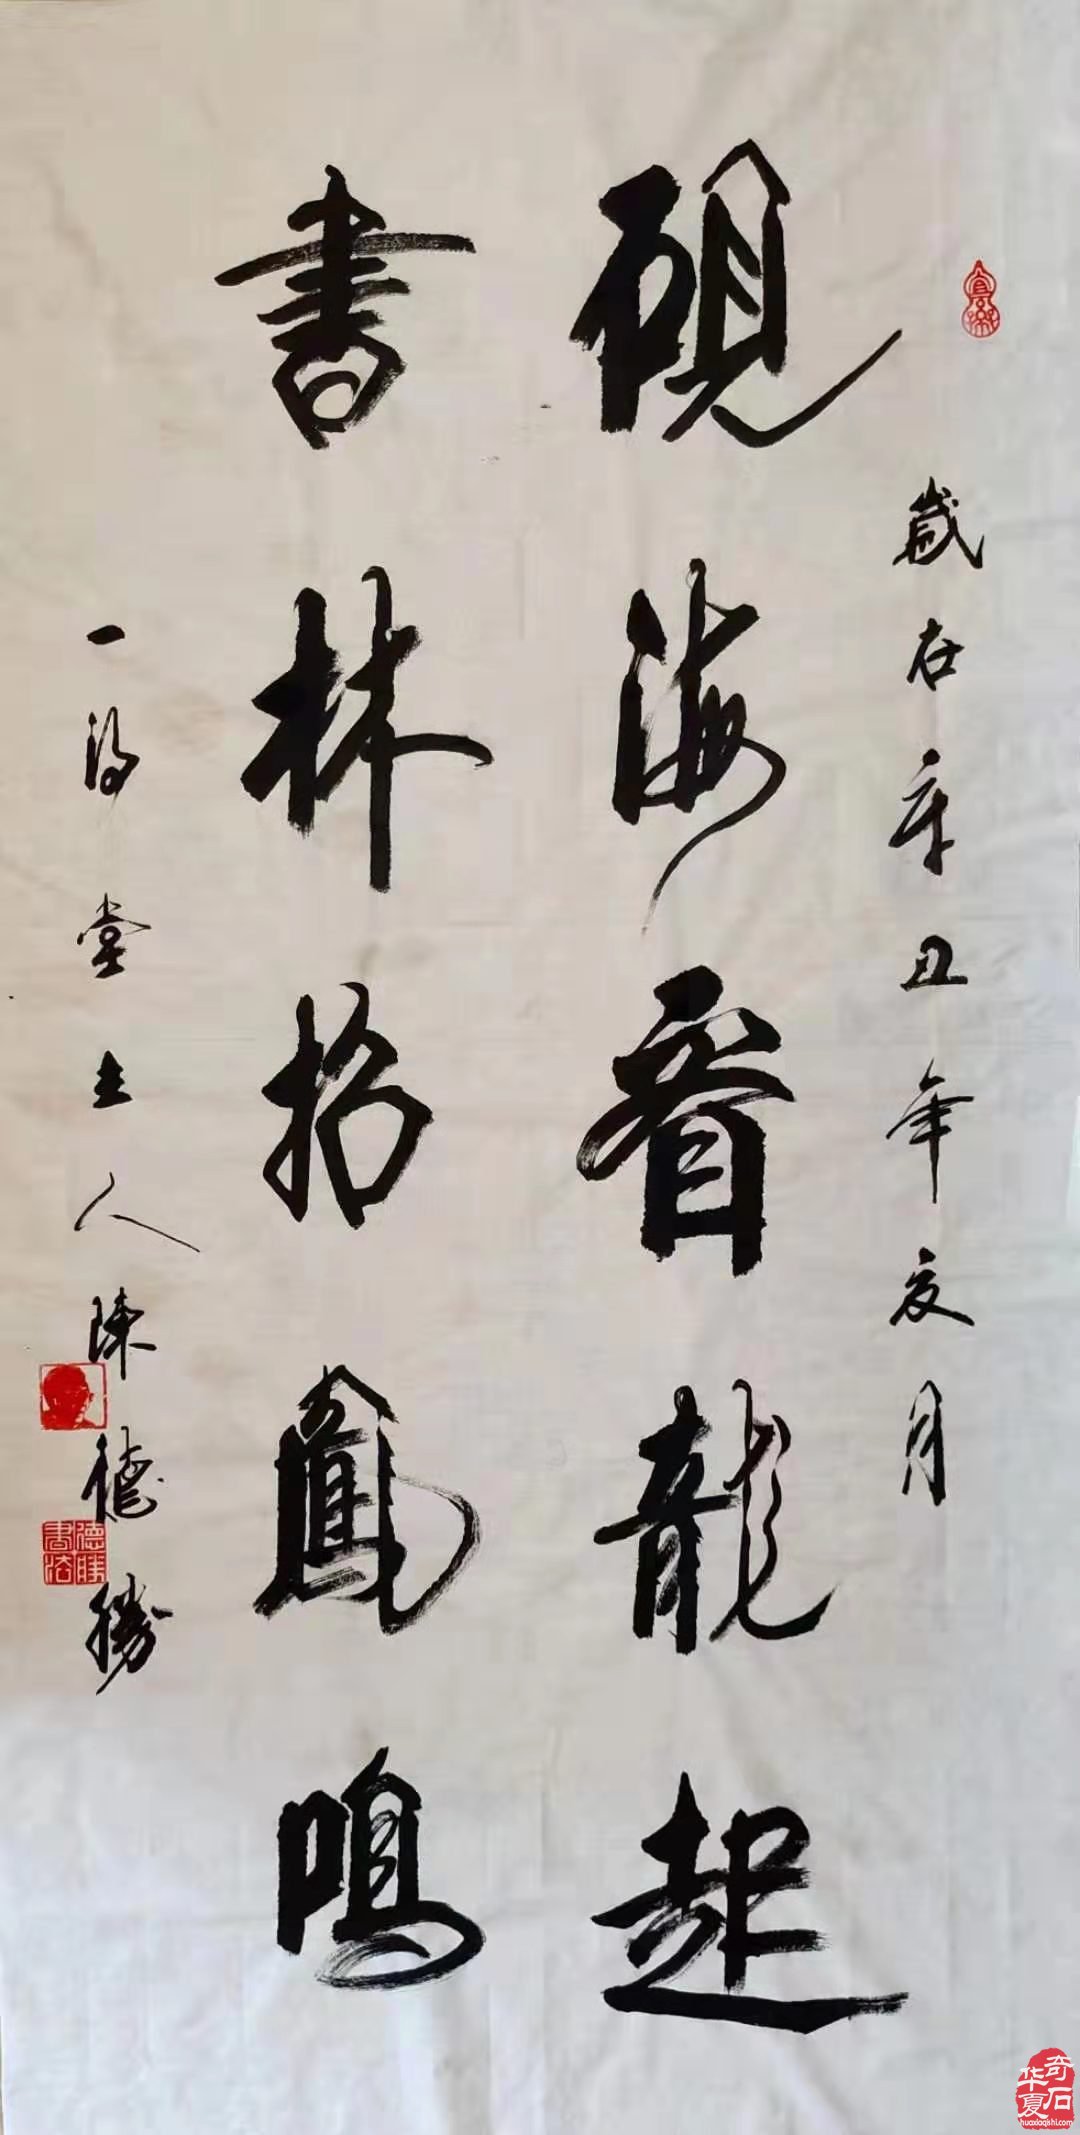 歲在辛丑年夏月
硯海看龍起
書林招鳳鳴
一得堂主人陳德勝
德勝書法
华夏奇石
huaxiaqishi.com